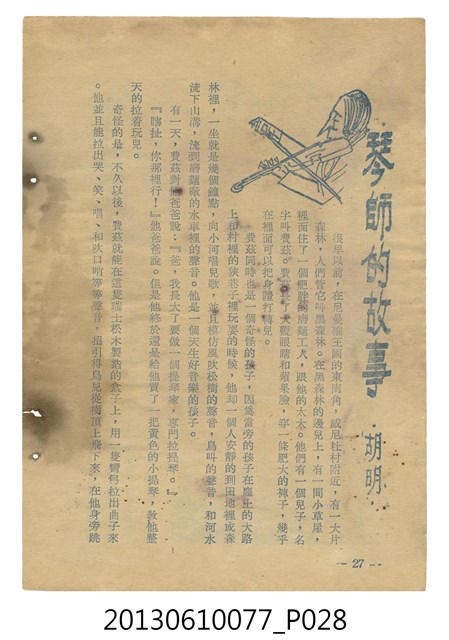 琴師的故事
胡明
很早以前，在尼曼德王國的東南角，威尼杜村附近，有一大片
森林，人們管它叫黑森林。在黑森林的邊兒上，有一間小草屋，
裡面住了一個肥胖的磨麵工人，跟他的太太。他們有一個兒子，名
字叫費茲。費茲長了大眼睛和蘋果臉，穿一條肥大的褲子，幾乎
在裡面可以把身體打轉兒。
費茲同時也是一個奇怪的孩子，因為當旁的孩子在鹿士的大路
上和村裡的狹巷子裡玩耍的時候，他却一個人安靜的到田地裡或森
林裡，一坐就是幾個鐘點，向小河唱兒歌，並且模仿風吹松樹的聲音，鳥叫的聲音，和河水
流下山溝，流到磨麵廠的水車裡的聲音。他是一個天生好音樂的孩子。
有一天，費茲對他爸爸說：『爸，我長大了要做一個提琴家，專門拉提琴。』
『瞎扯，你那裡行！』他爸爸說。但是他終於還是給他買了一把黃色的小提琴，教他整
天的拉着玩兒。
奇怪的是，不久以後，費茲就能在這塊瑞士松木製造的盒子上，用一隻彎弓拉出曲子來
。他並且能拉出哭、笑、唱、和吹口哨等等聲音，招引得鳥兒從樹頂上飛下來，在他身旁跳
— 27 —
20130610077_P028